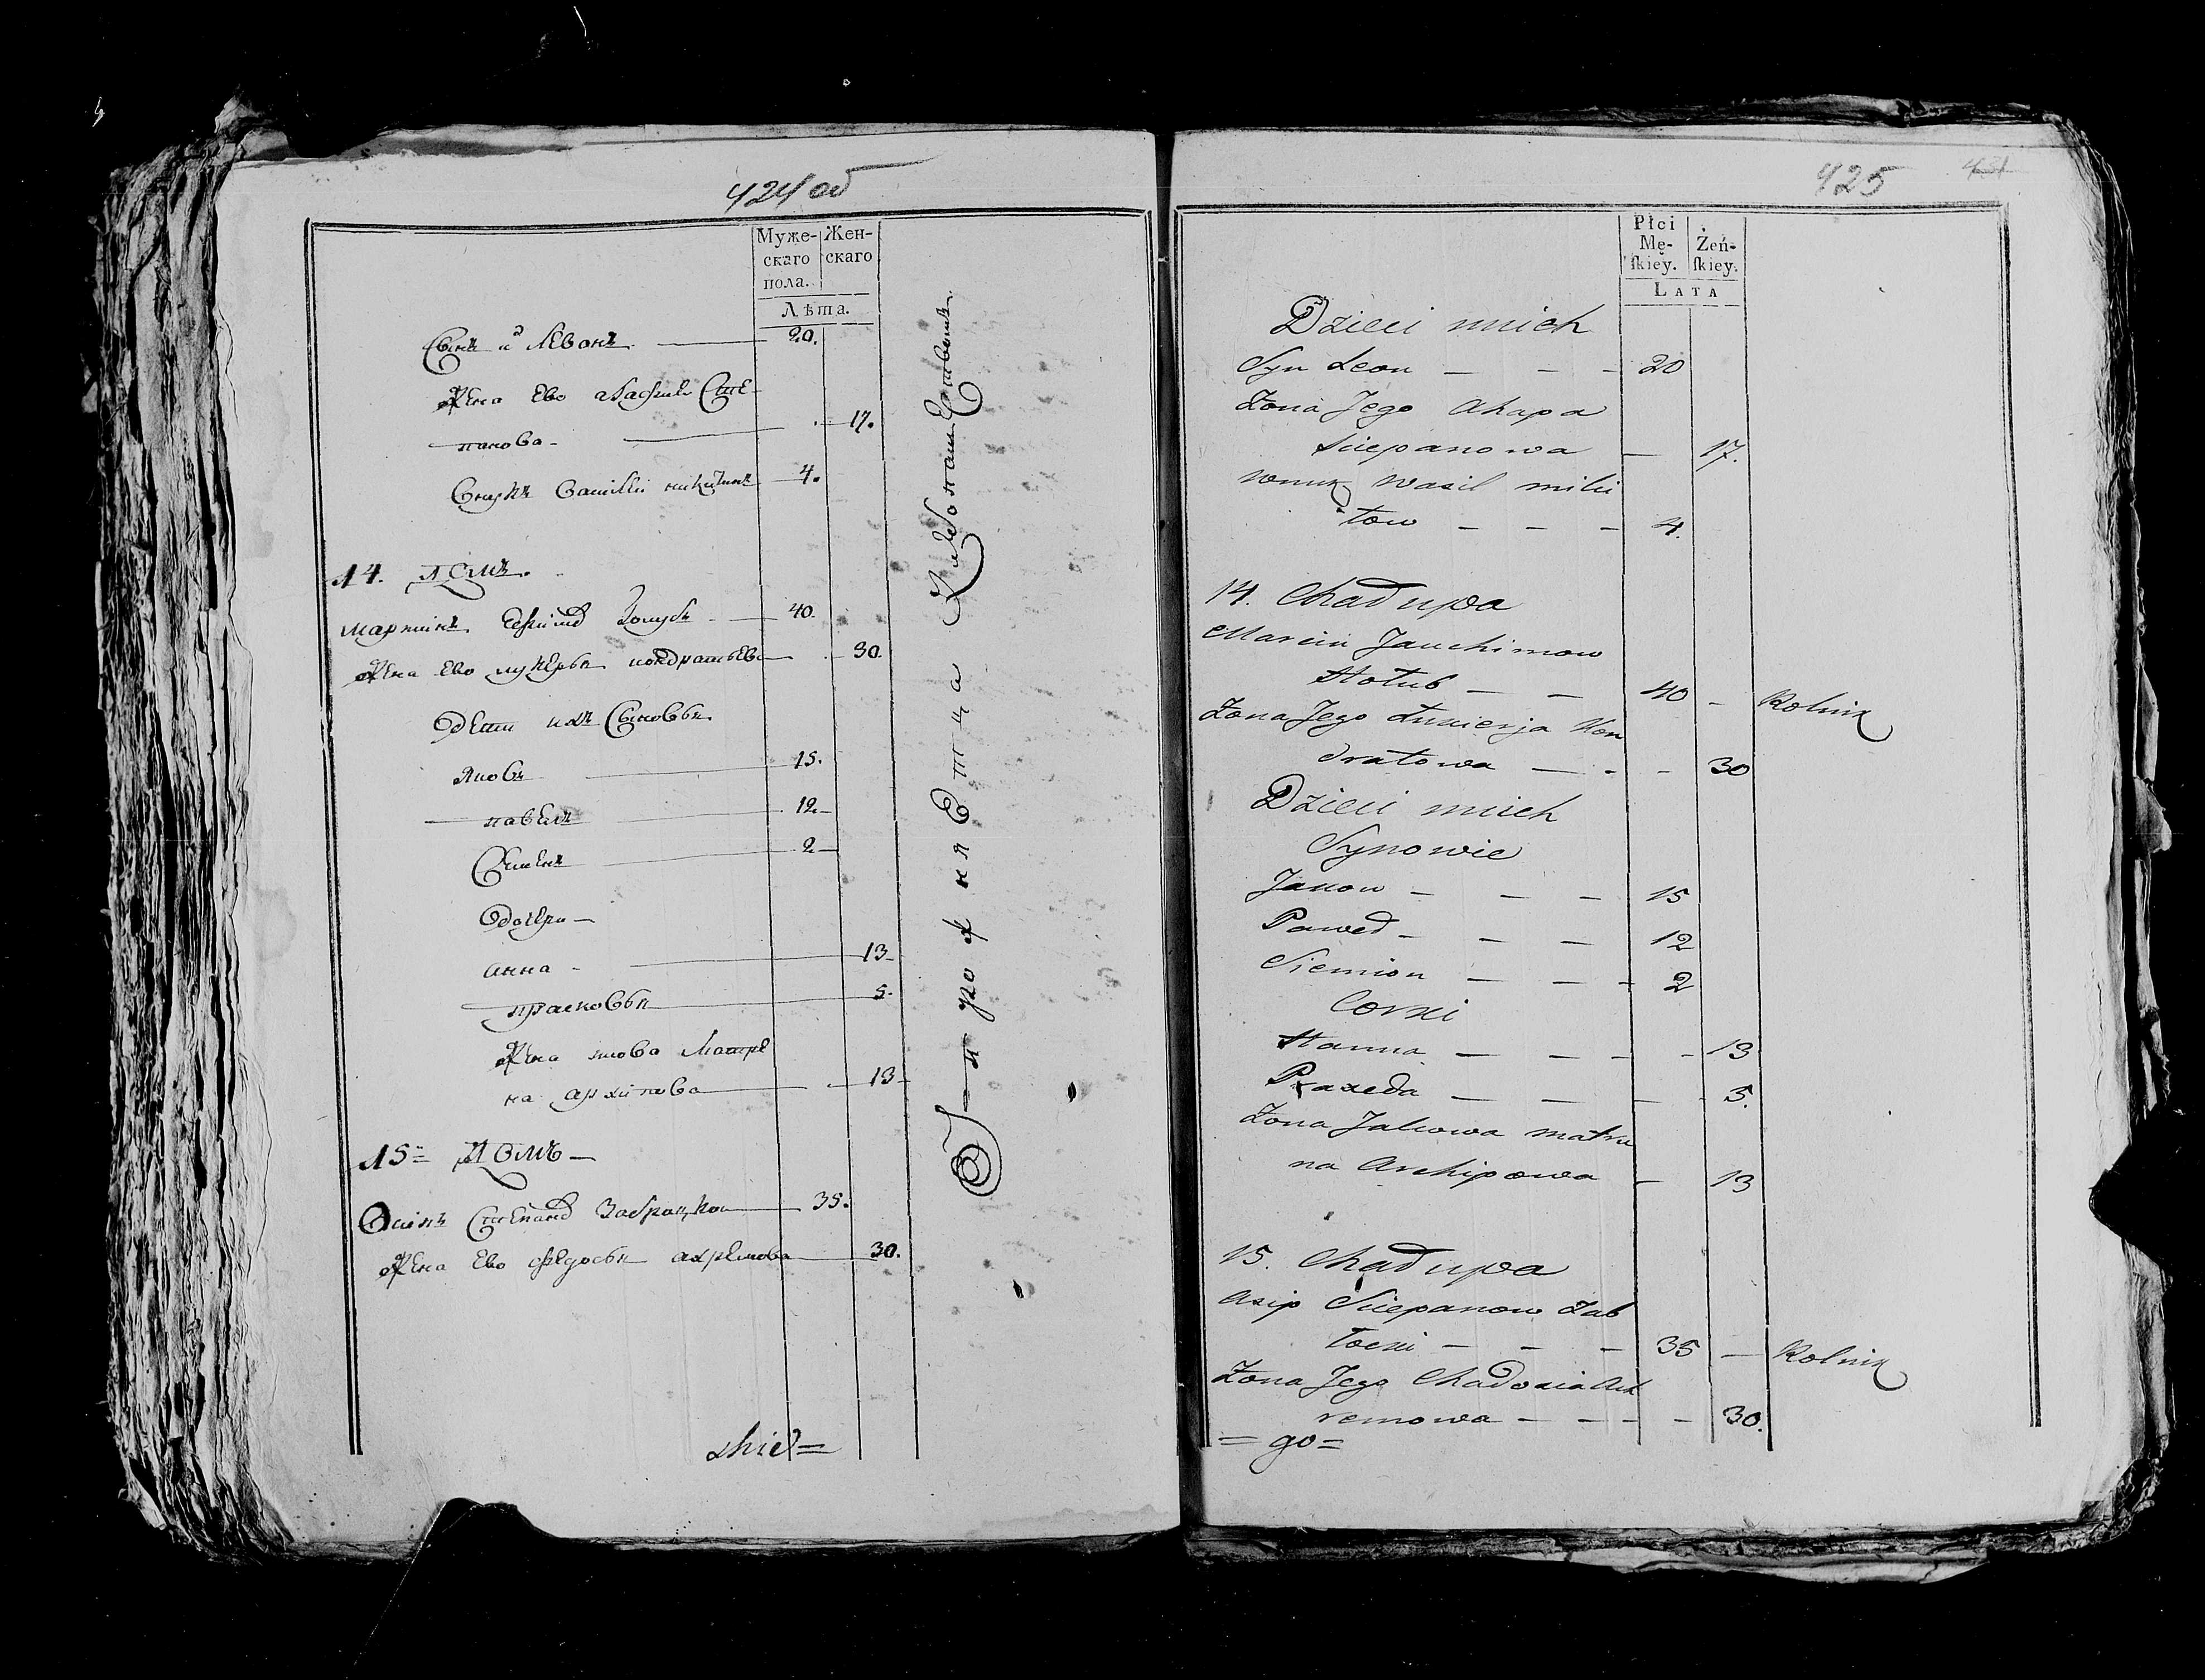 424 об
Муже-
скаго
пола.
Жен-
скаго
Лѣта.
Сынъ Левонъ 20.
Жена Ево Сте-
панова 17.
Внукъ 4.
14. домъ.
Мартинъ 40.
Жена Ево Лукерья Кондратьева 30.
Дети ихъ Сыновья
Яковъ 15.
Павелъ 12
Семенъ 2
Дочери
Анна 13
Прасковья 5.
Жена Матре
на Архипова 13
15 домъ
Осипъ 35.
Жена Ево Федосья Ахремова 30.
425
Płci
Mę-
ſkiey.
Żeń-
ſkiey.
LATA
Dzieci unich
Syn Leon 20
Żona Jego Ahapa
Sciepanowa 17.
Wnuk Wasil Miki
tow 4.
14. Chałupa
Marcin Jauchimow
Hołub 40 Rolnik
Żona Jego Łukierja Kon
dratowa 30
Dzieci unich
Synowie
Jakow 15
Paweł 12
Siemion 2
Corki
Hanna 13
Praxeda 5.
Żona Jakowa Matru
na Archipowa 13
15. Chałupa
Asip Sciepanow Zab
łocki 35 Rolnik
Żona Jego Chadosia Ach
remowa 30.
= go =